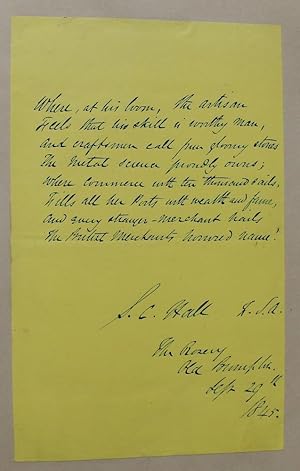 Where, at his loom, the artisan
Feels that his skill is worthy man,
and craftsmen call from gloomy stores
The metal science proudly owns;
Where commerce with ten thousand sails,
Fills all her Ports with wealth and fame,
and every stranger-merchant hails
The British Merchant's honored name!
S. C. Hall F.S.A.
The Rosery
Old Brompton.
Sept 29th
1845.